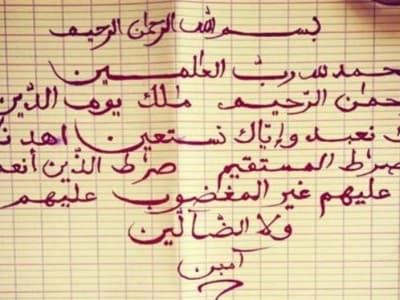 بسم الله الرحمن الرحيم
حمد لله رب العلمين
حمن الرحيم ملك يوم الدين
ك نعبد وإياك نستعين اهد ن
صراط المستقيم صراط الذين أنعم
عليهم غير المغضوب عليهم
ولا الضالين
آمين